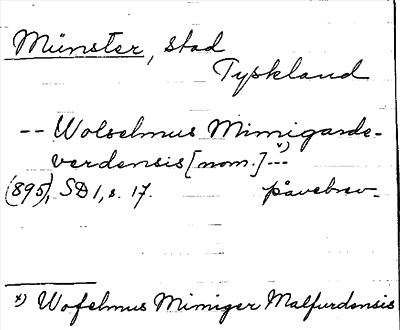 Münster, stad
Tyskland
-- Wolselmus Mimigarde-
verdensis [nom.] --- x)
(895), SD 1, s. 17. påvebrev.
x) Wofelmus Mimiger Malfurdensis